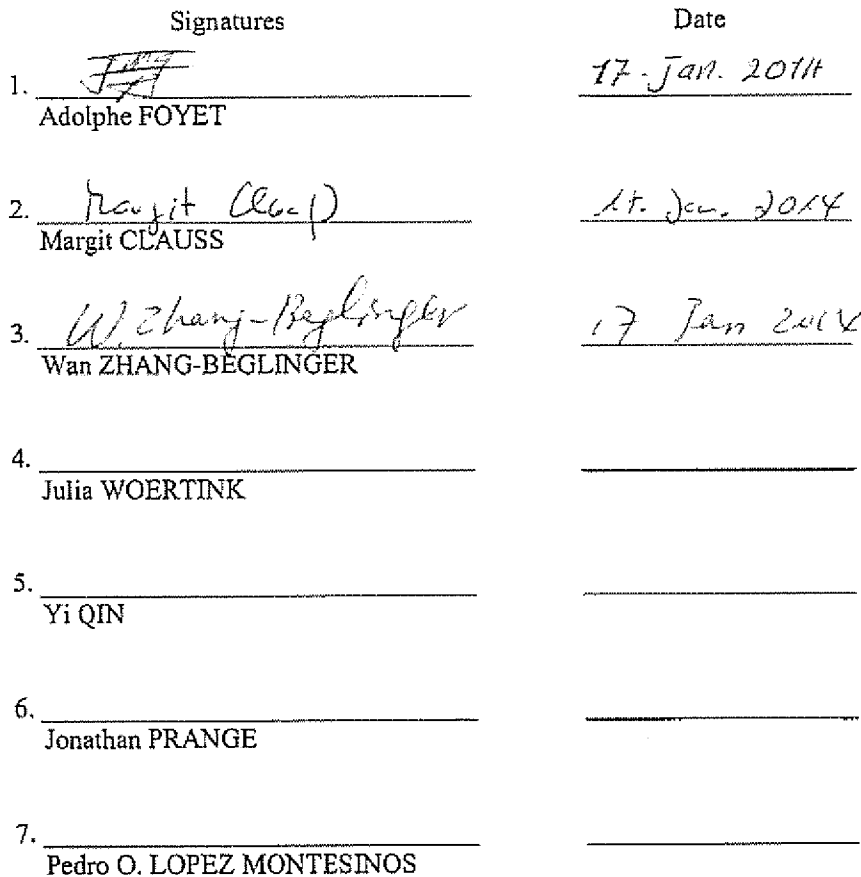 Signatures Date
1. 17. Jan. 2014
Adolphe FOYET
2. Margit 17. Jan. 2014
Margit CLAUSS
3. W. Zhang-Beglinger 17 Jan 2014
Wan ZHANG-BEGLINGER
4.
Julia WOERTINK
5.
Yi QIN
6.
Jonathan PRANGE
7.
Pedro O. LOPEZ MONTESINOS